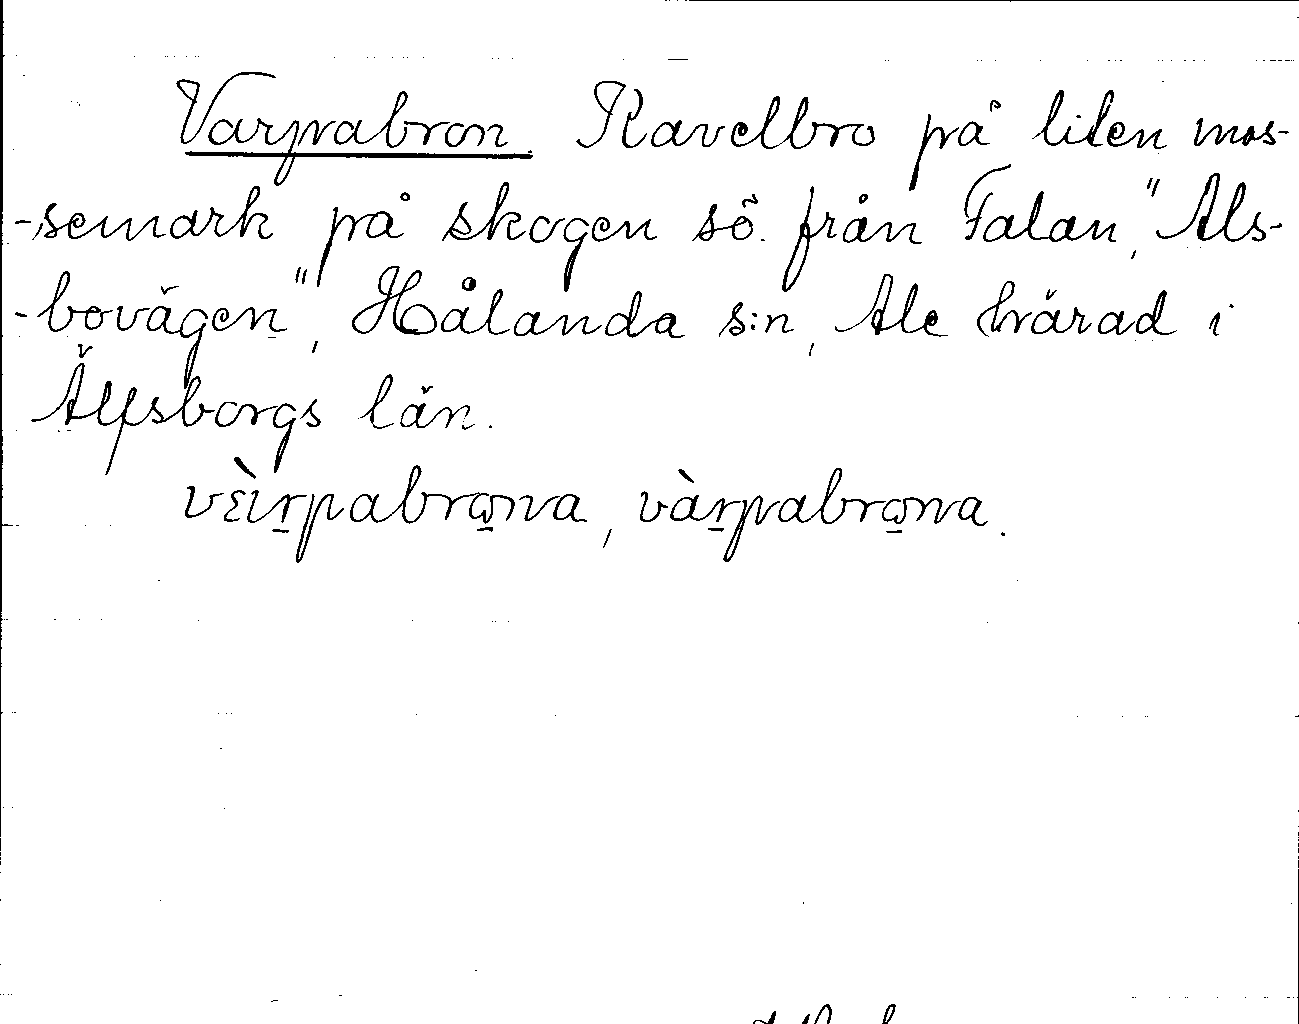 Varpabron. Kavelbro på liten mos-
-semark på skogen sö. från Falan, "Als-
-bovägen", Hålanda s:n, Ale härad i
Älfsborgs län.
vèirpabrωna, vàrpabrωna.